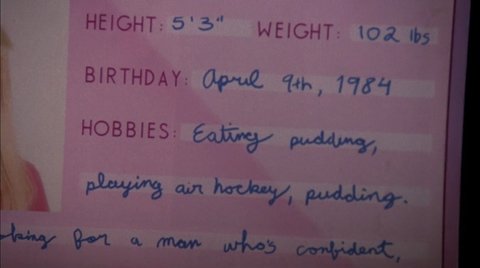 HEIGHT: 5'3" WEIGHT: 102 lbs
BIRTHDAY: April 9th, 1984
HOBBIES: Eating pudding,
playing air hockey, pudding.
for a man who's confident,